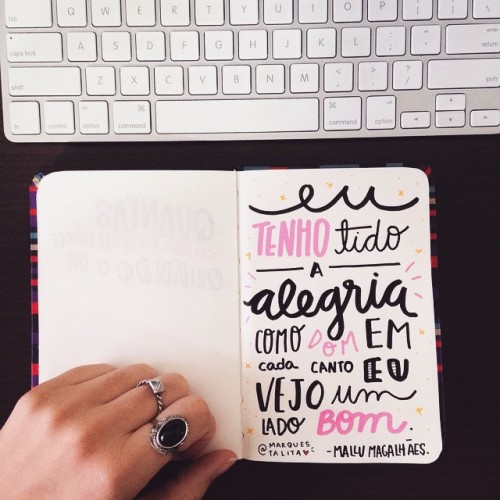 tab Q W E R T Y U I O P { [ } ] | \
caps lock A S D F G H J K L : ; " ' enter return
shift Z X C V B N M < , > . ? / shift
fn control option ⌘ command ⌘ command option
QUANTAS
QUANDO
eu
TENHO tido
A
alegria
COMO DOM EM
cada CANTO EU
VEJO um
LADO BOM.
@MARQUES_
TALITA
-MALLU MAGALHÃES.